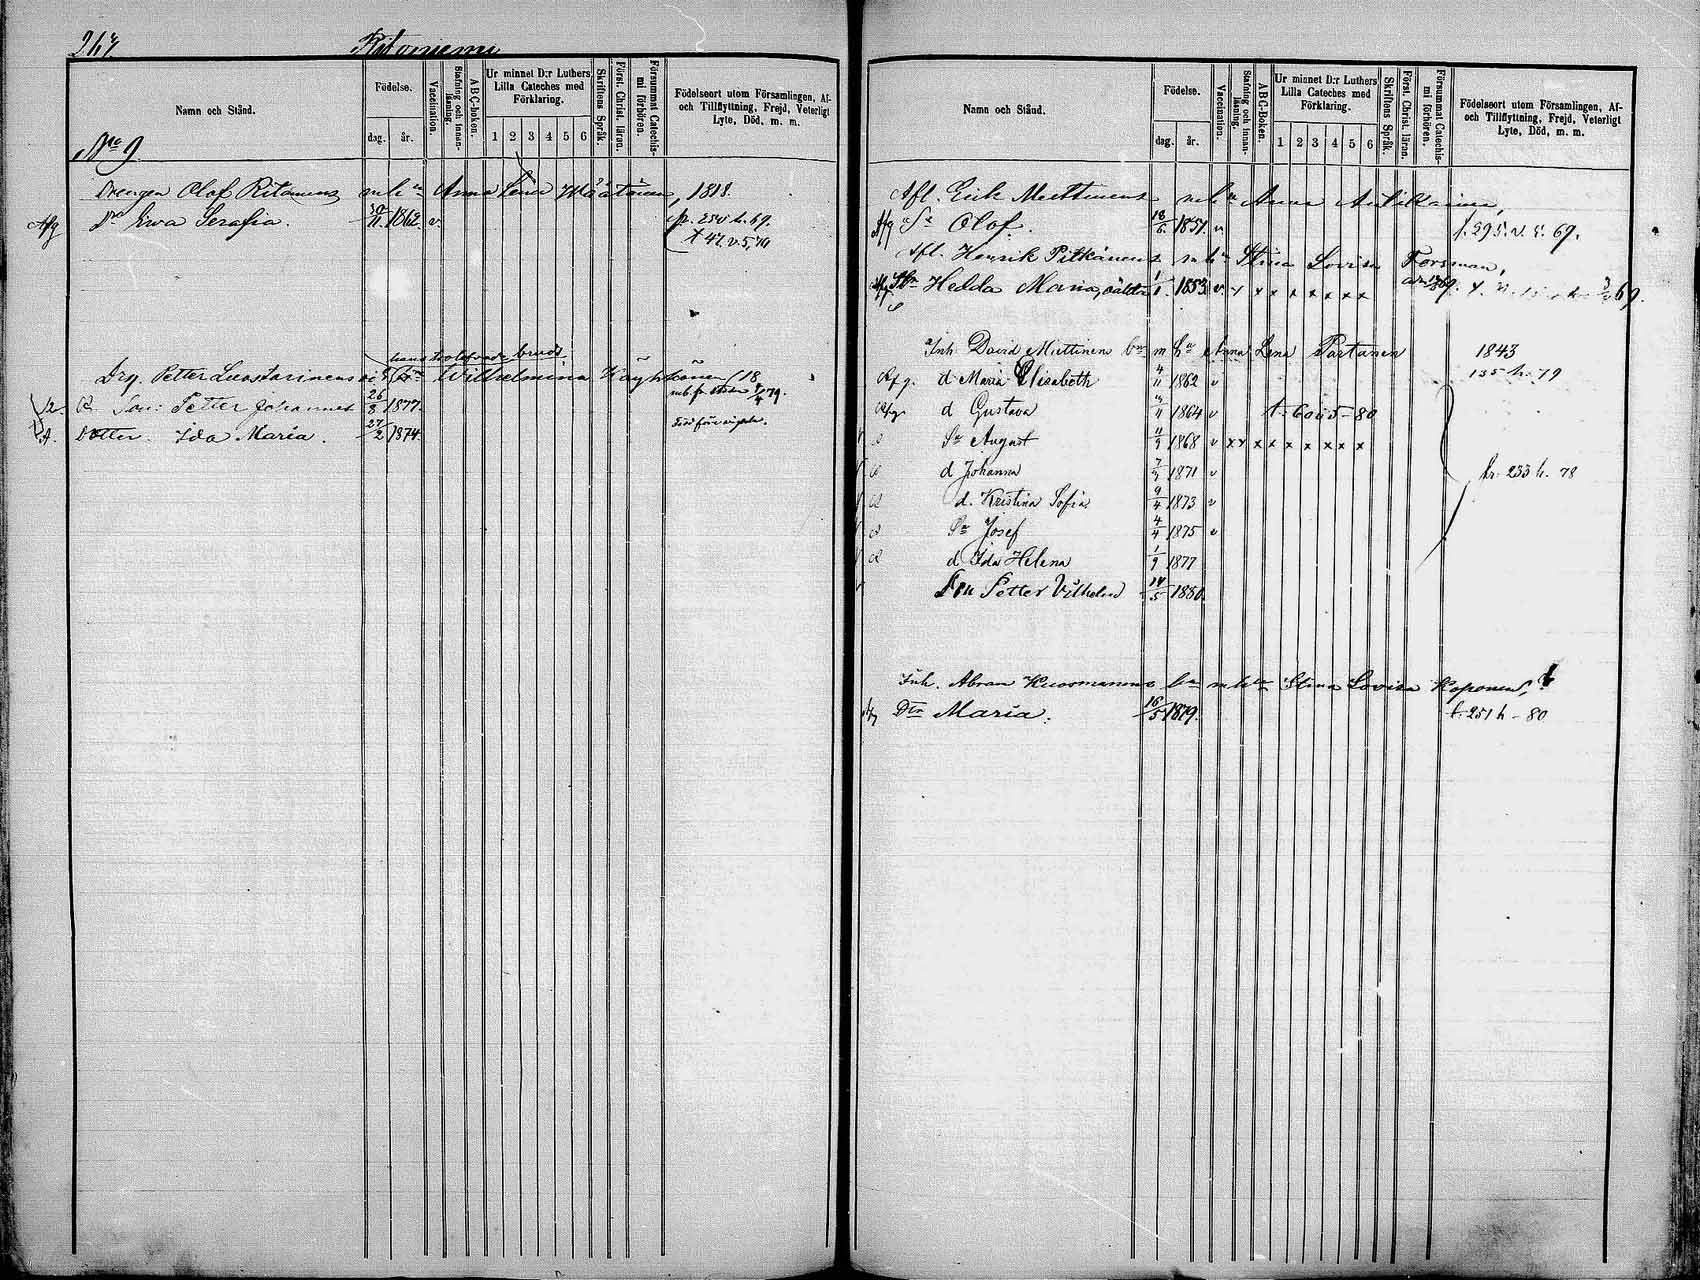 267. Ritoniemi
Namn och Stånd.
Födelse.
dag. år.
Vaccination.
Stafning och innan-läsning.
A B C-Boken.
Ur minnet D:r Luthers Lilla Cateches med Förklaring.
1 2 3 4 5 6
Skriftens Språk.
Först. Christ. läran.
Försummat Catechismi förhören.
Födelseort utom Församlingen, Af- och Tillflyttning, Frejd, Veterligt Lyte, Död, m. m.
No 9
Drengen Olof Ritonens m h:u Anna Lena Määttänen, 1818.
Afg Dr Ewa Serafia. 30/11 1862. v. fr. 250 h. 69.
t 41 v. 5, 70
hans trolofvade brud
Drg. Petter Luostarinens Wilhelmina Käyhkönen (18
R. Son: Petter Johannes 26/8 1877.
Dotter. Ida Maria. 27/2 1874.
Namn och Stånd.
Födelse.
dag. år.
Vaccination.
Stafning och innan-läsning.
A B C-Boken.
Ur minnet D:r Luthers Lilla Cateches med Förklaring.
1 2 3 4 5 6
Skriftens Språk.
Först. Christ. läran.
Försummat Catechismi förhören.
Födelseort utom Församlingen, Af- och Tillflyttning, Frejd, Veterligt Lyte, Död, m. m.
Afl. Erik Miettinens m h:u Anna Antikainen,
Afg Sn Olof. 18/6 1851. v t. 295. v. 5. 69.
Afl. Henrik Pitkänens m h:u Stina Lovisa Forsman,
Hedda Maria, 1853 v. x x x x x x x x 69.
Inh David Miettinen bns m ha Anna Lena Partanen 1843
Afg. d Maria Elisabeth 4/11 1862 v 135 h. 79
Afg. d Gustava 1864 v t. 600 5-80
Sn August 11/9 1868 v x x x x x x x x
d Johanna 1871 v fr. 233 h. 78
d. Kristina Sofia 9/4 1873 v
Sn Josef 4/4 1875 v
d. Ida Helena 1/9 1877
Son Petter Vilhelm 14/5 1880.
Inh. Abram Kuosmanens bns m h:u Stina Lovisa Koponen,
Afg Dtr Maria. 16/5 1879. t. 251 h - 80